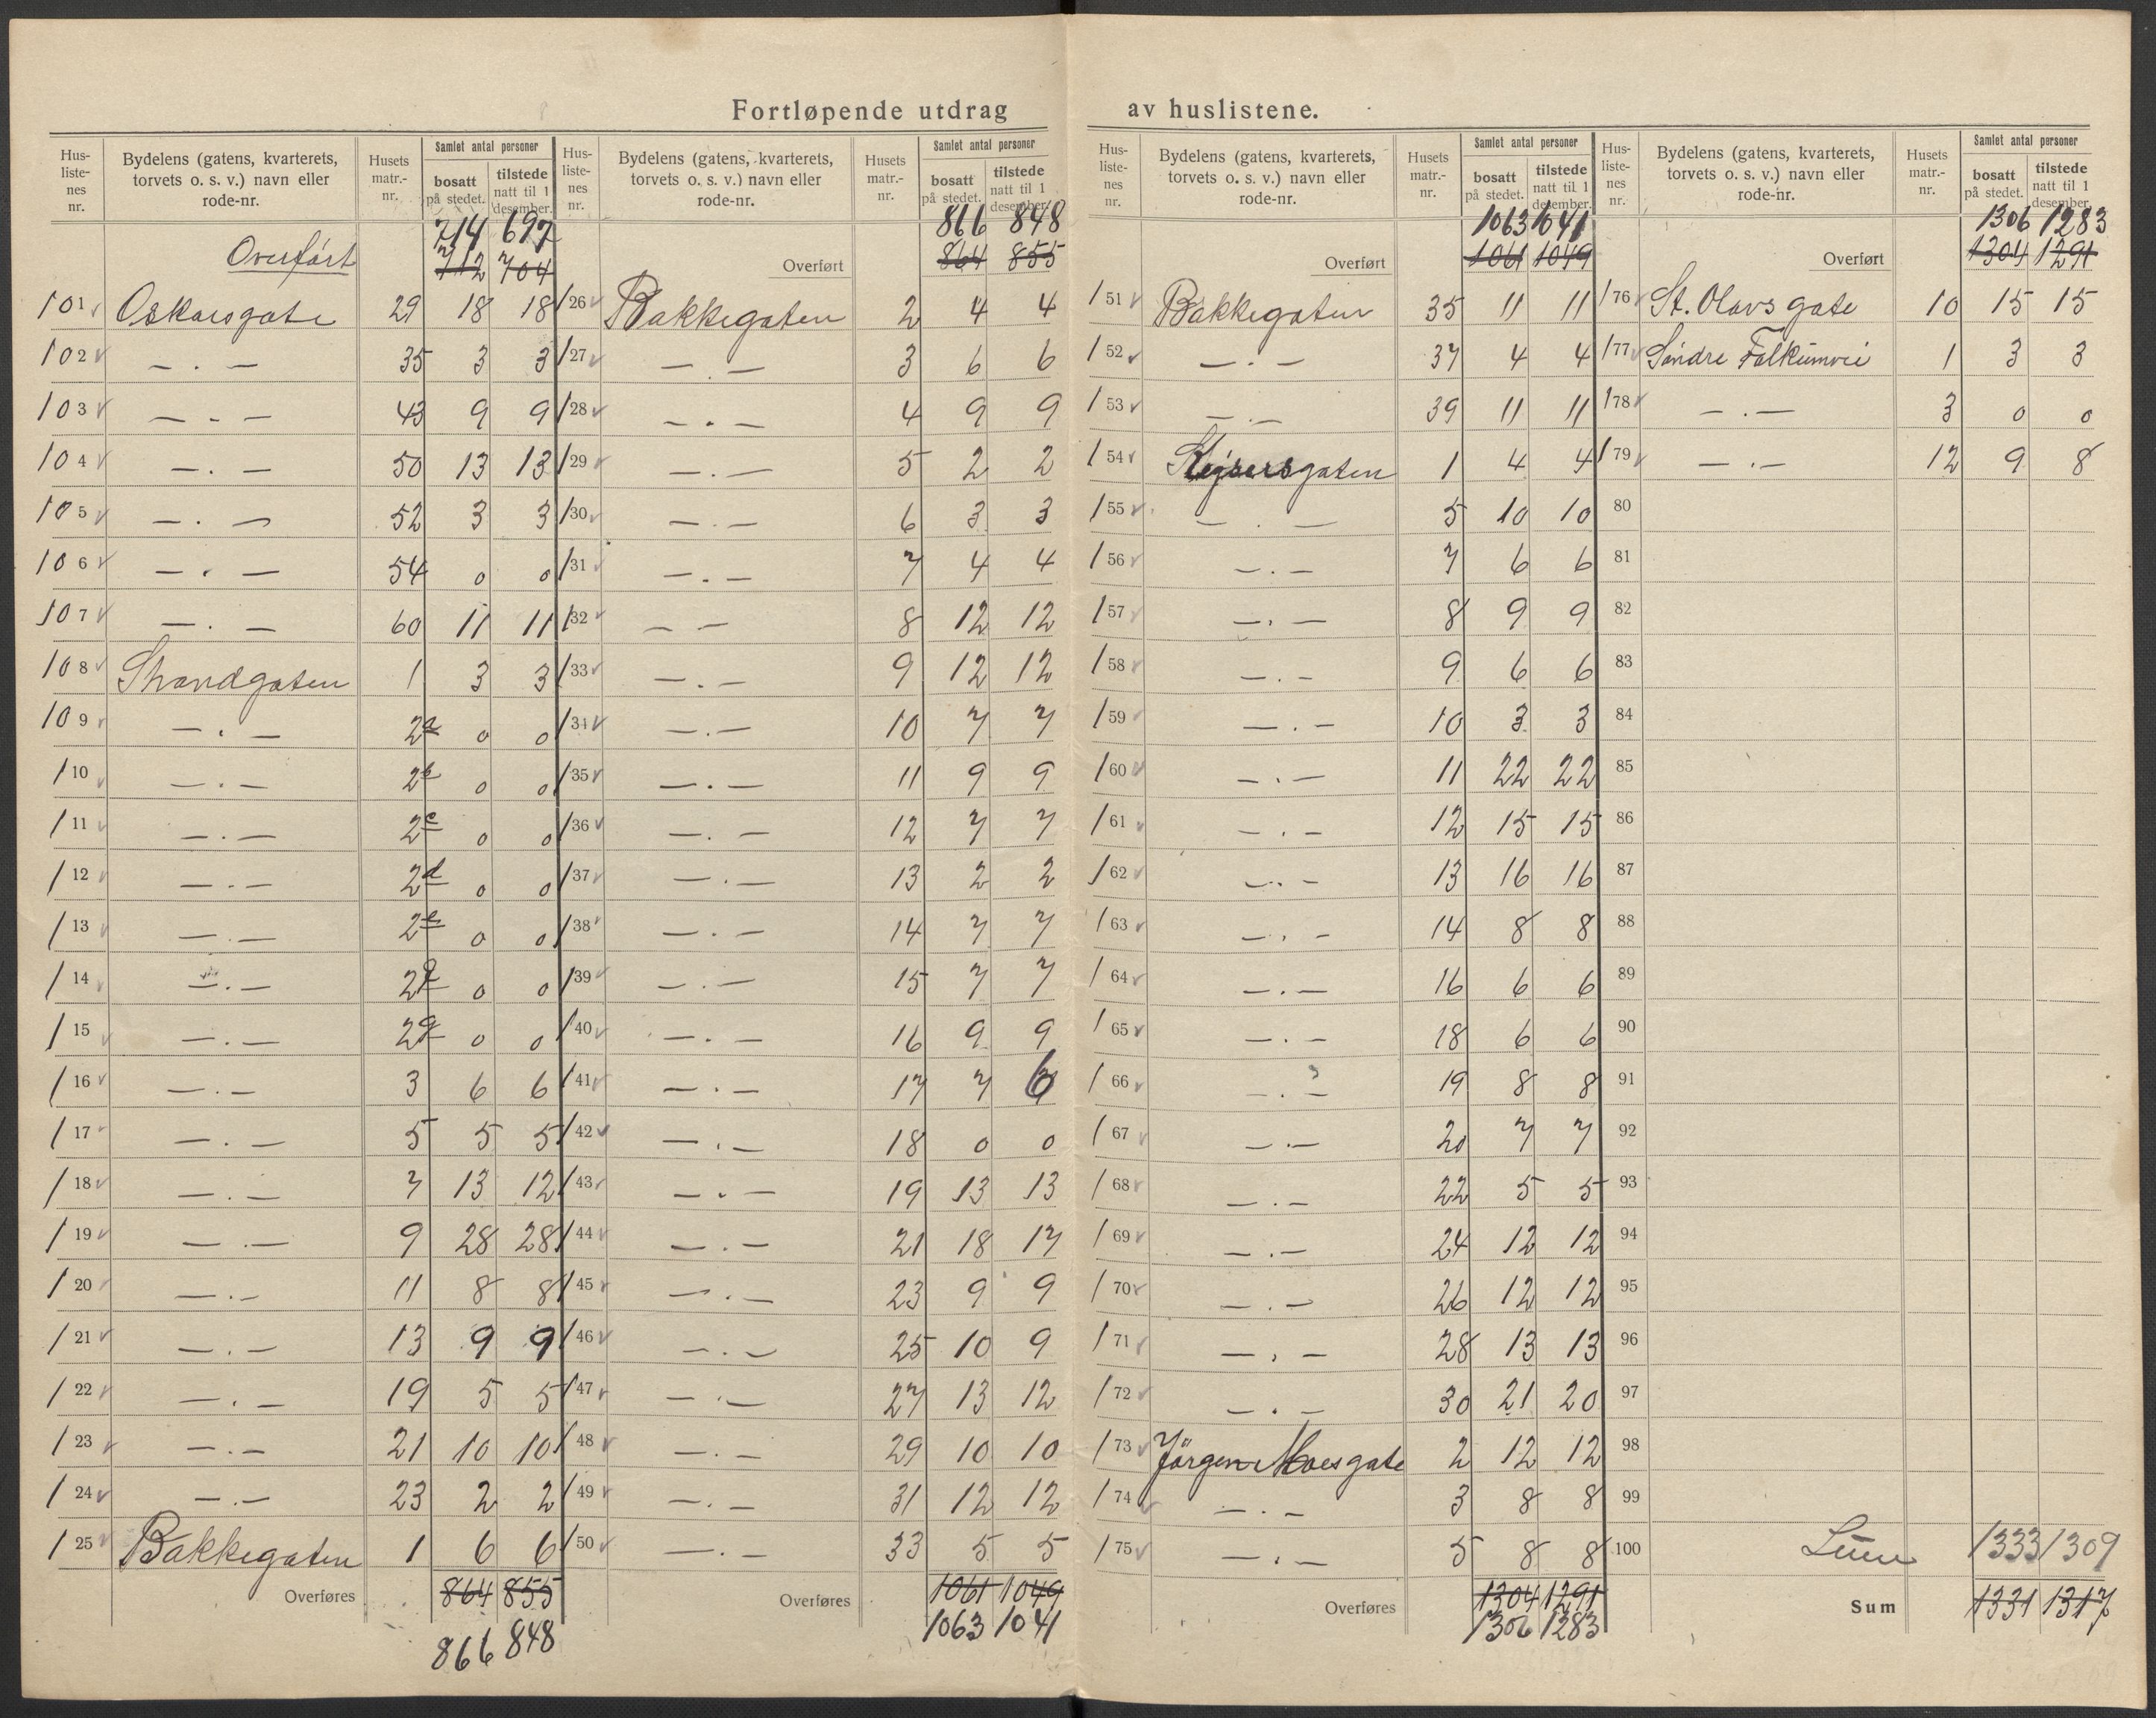 Fortløpende utdrag av huslistene.
Hus-listenes nr. | Bydelens (gatens, kvarterets, torvets o. s. v.) navn eller rode-nr. | Husets matr.-nr. | Samlet antal personer | bosatt på stedet. | tilstede natt til 1 desember.
714 697
Overført 712 704
101 Oskarsgate 29 18 18
102 — . — 35 3 3
103 — . — 43 9 9
104 — . — 50 13 13
105 — . — 52 3 3
106 — . — 54 0 0
107 — . — 60 11 11
108 Strandgaten 1 3 3
109 — . — 2a 0 0
110 — . — 2b 0 0
111 — . — 2c 0 0
112 — . — 2d 0 0
113 — . — 2e 0 0
114 — . — 2f 0 0
115 — . — 2g 0 0
116 — . — 3 6 6
117 — . — 5 5 5
118 — . — 7 13 12
119 — . — 9 28 28
120 — . — 11 8 8
121 — . — 13 9 9
122 — . — 19 5 5
123 — . — 21 10 10
124 — . — 23 2 2
125 Bakkegaten 1 6 6
Overføres 864 855
866 848
Hus-listenes nr. | Bydelens (gatens, kvarterets, torvets o. s. v.) navn eller rode-nr. | Husets matr.-nr. | Samlet antal personer | bosatt på stedet. | tilstede natt til 1 desember.
866 848
Overført 864 855
126 Bakkegaten 2 4 4
127 — . — 3 6 6
128 — . — 4 9 9
129 — . — 5 2 2
130 — . — 6 3 3
131 — . — 7 4 4
132 — — 8 12 12
133 — . — 9 12 12
134 — . — 10 7 7
135 — . — 11 9 9
136 — . — 12 7 7
137 — . — 13 2 2
138 — . — 14 7 7
139 — . — 15 7 7
140 — . — 16 9 9
141 — . — 17 7 6
142 — . — 18 0 0
143 — . — 19 13 13
144 — . — 21 18 17
145 — . — 23 9 9
146 — . — 25 10 9
147 — . — 27 13 12
148 — . — 29 10 10
149 — . — 31 12 12
150 — . — 33 5 5
Overføres 1061 1049
1063 1041
Hus-listenes nr. | Bydelens (gatens, kvarterets, torvets o. s. v.) navn eller rode-nr. | Husets matr.-nr. | Samlet antal personer | bosatt på stedet. | tilstede natt til 1 desember.
1063 1041
Overført 1061 1049
151 Bakkegaten 35 11 11
152 — . — 37 4 4
153 — . — 39 11 11
154 Kejsersgaten 1 4 4
155 — . — 5 10 10
156 — . — 7 6 6
157 — . — 8 9 9
158 — . — 9 6 6
159 — . — 10 3 3
160 — . — 11 22 22
161 — . — 12 15 15
162 — . — 13 16 16
163 — . — 14 8 8
164 — . — 16 6 6
165 — . — 18 6 6
166 — . — 19 8 8
167 — . — 20 7 7
168 — . — 22 5 5
169 — . — 24 12 12
170 — . — 26 12 12
171 — . — 28 13 13
172 — . — 30 21 20
173 Jörgen Moesgate 2 12 12
174 — . — 3 8 8
175 — . — 5 8 8
Overføres 1304 1291
1306 1283
Hus-listenes nr. | Bydelens (gatens, kvarterets, torvets o. s. v.) navn eller rode-nr. | Husets matr.-nr. | Samlet antal personer | bosatt på stedet. | tilstede natt til 1 desember.
1306 1283
Overført 1304 1291
176 St. Olavs gate 10 15 15
177 Söndre Falkumvei 1 3 3
178 — . — 3 0 0
179 — . — 12 9 8
80
81
82
83
84
85
86
87
88
89
90
91
92
93
94
95
96
97
98
99
100 Sum 1333 1309
Sum 1331 1317